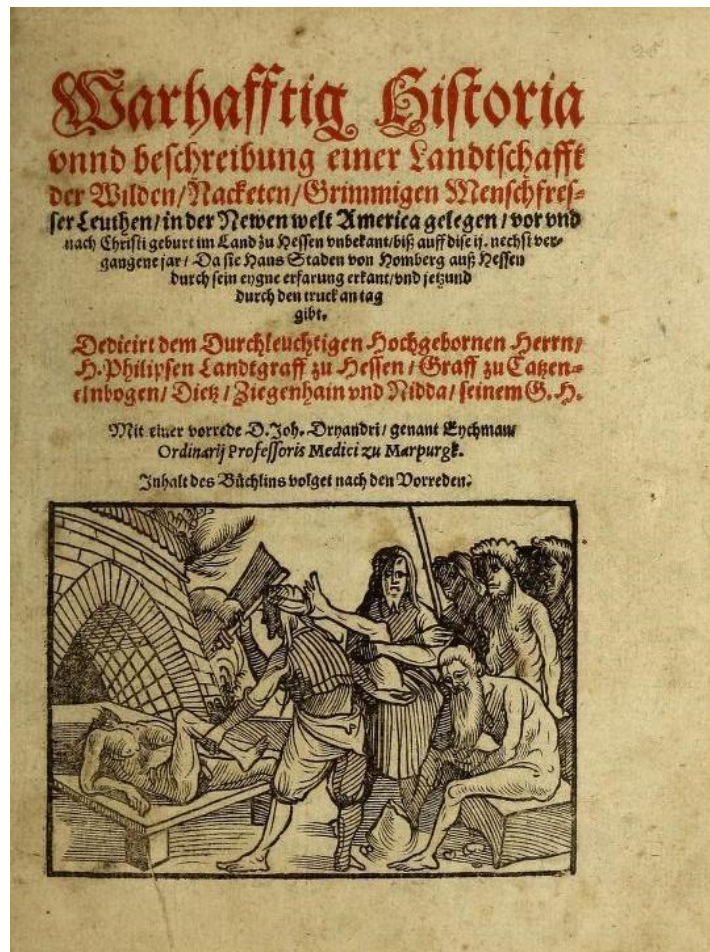 Warhafftig Historia
vnnd beschreibung einer Landtschafft
der Wilden/Nacketen/Grimmigen Menschfres-
ser Leuthen/in der Newen welt America gelegen/vor vnd
nach Christi geburt im Land zu Hessen vnbekant/biß auff dise ij. nechst ver-
gangene jar/Da sie Hans Staden von Homberg auß Hessen
durch sein eygne erfarung erkant/vnd jetzund
durch den truck an tag
gibt.
Dedicirt dem Durchleuchtigen Hochgebornen Herrn/
H. Philipsen Landtgraff zu Hessen/Graff zu Catzen-
elnbogen/Dietz/Ziegenhain vnd Nidda/seinem G. H.
Mit einer vorrede D. Joh. Dryandri/genant Eychman/
Ordinarij Professoris Medici zu Marpurgk.
Inhalt des Büchlins volget nach den Vorreden.